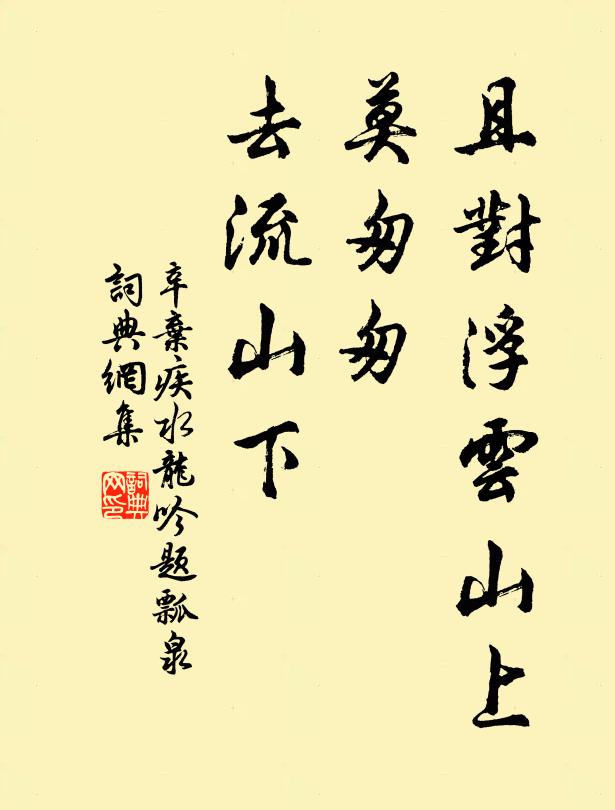 且對浮雲山上
莫匆匆
去流山下
辛棄疾水龍吟題瓢泉
詞典網集
詞典
网印